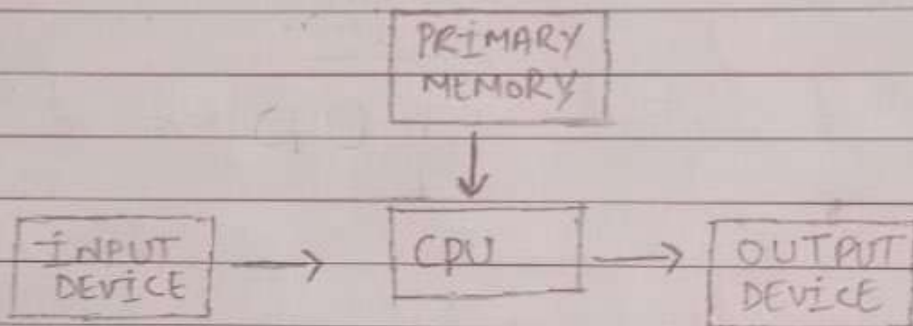 PRIMARY
MEMORY
INPUT
DEVICE
CPU
OUTPUT
DEVICE